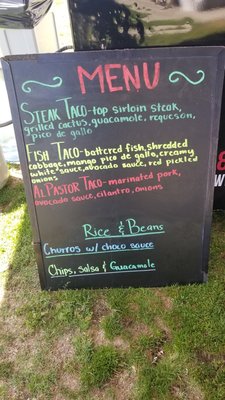 MENU
STEAK TACO-top sirloin steak,
grilled cactus, guacamole, requeson,
pico de gallo
FISH TACO-battered fish, shredded
cabbage, mango pico de gallo, creamy
white sauce, avocado sauce, red pickled
onions
AL PASTOR TACO-marinated pork,
avocado sauce, cilantro, onions
Rice & Beans
Churros w/ choco sauce
Chips, salsa & Guacamole